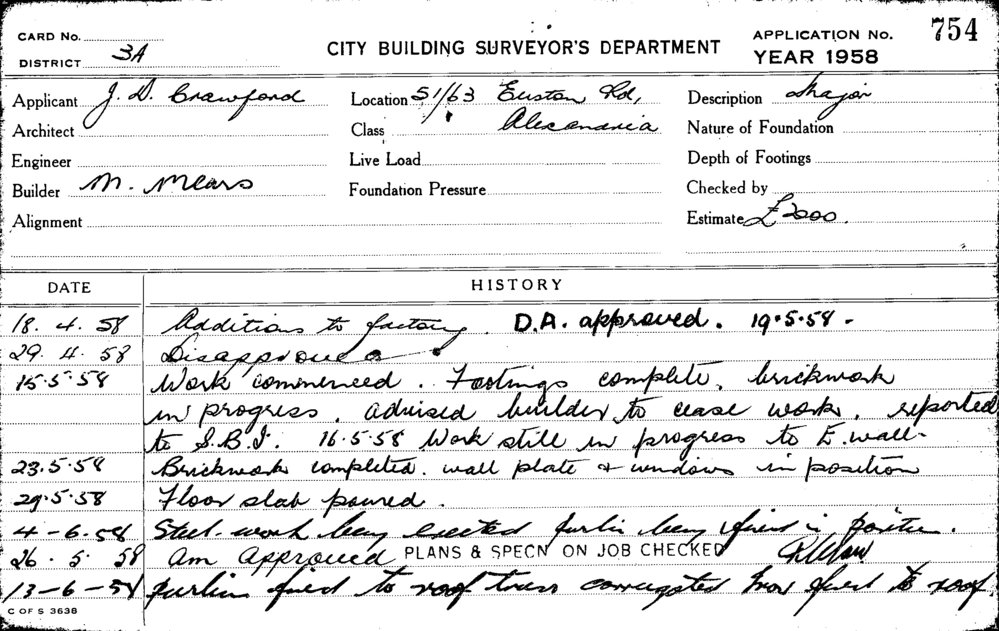 CARD No.
DISTRICT 3A
CITY BUILDING SURVEYOR'S DEPARTMENT
APPLICATION No. 754
YEAR 1958
Applicant J. D. Crawford
Location 51/63 Euston Rd,
Description Major
Architect
Class Alexandria
Nature of Foundation
Engineer
Live Load
Depth of Footings
Builder M. Mears
Foundation Pressure
Checked by
Alignment
Estimate £2000.
DATE HISTORY
18. 4. 58 Additions to factory. D.A. approved. 19.5.58.
29. 4. 58 Disapproved
15.5.58 Work commenced. Footings complete, brickwork
in progress. advised builder to cease work, reported
to S.B.I. 16.5.58 Work still in progress to E. wall.
23.5.58 Brickwork completed. wall plate & windows in position
29.5.58 Floor slab poured.
4-6.58 Steel work being erected purlin being fixed in position.
26. 5 58 Am Approved PLANS & SPECN ON JOB CHECKED
13-6-58 purlins fixed to roof truss corrugated iron fixed to roof.
C OF S 3638